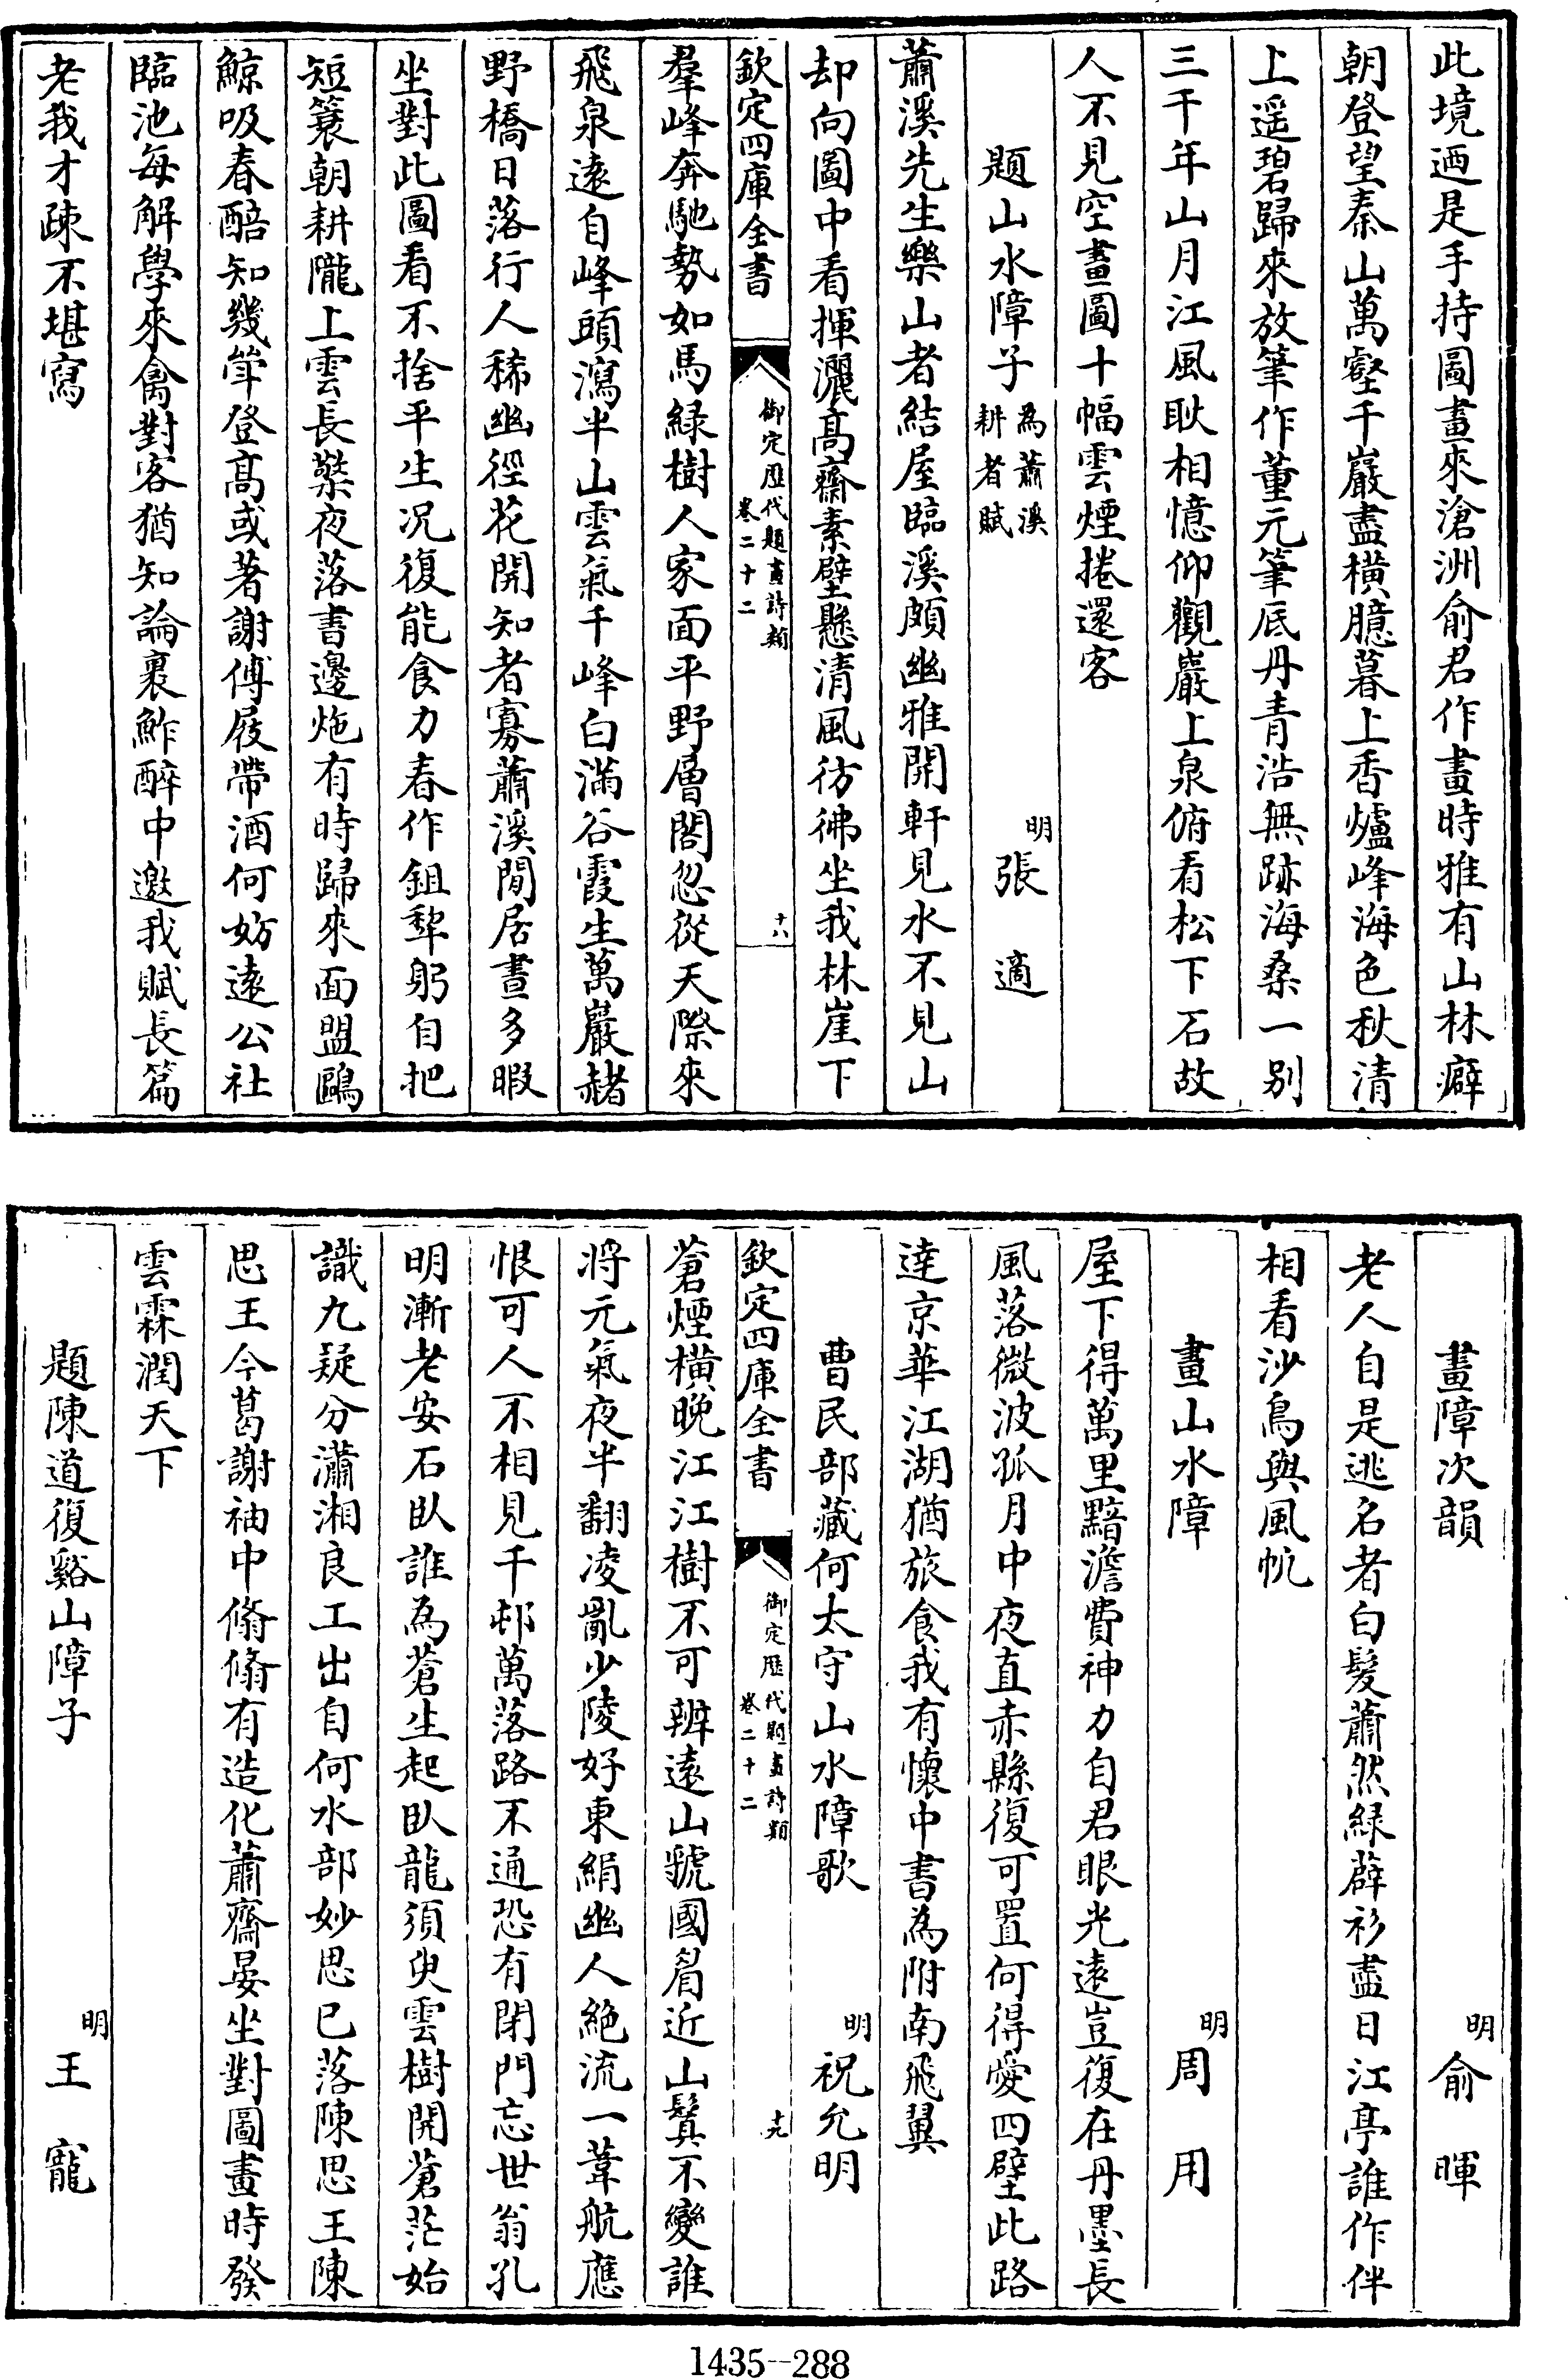 此境迺是手持圖畫來滄洲俞君作畫時雅有山林癖
朝登望秦山萬壑千巖盡橫臆暮上香爐峰海色秋清
上遥碧歸來放筆作董元筆底丹青浩無跡海桑一别
三千年山月江風耿相憶仰觀巖上泉俯看松下石故
人不見空畫圖十幅雲煙捲還客
題山水障子為蕭溪耕者賦 明張適
蕭溪先生樂山者結屋臨溪頗幽雅開軒見水不見山
却向圖中看揮灑髙齋素壁懸清風彷彿坐我林崖下
欽定四庫全書 御定歴代題畫詩類卷二十二 十八
羣峰奔馳勢如馬緑樹人家面平野層閣忽從天際來
飛泉遠自峰頭瀉半山雲氣千峰白滿谷霞生萬巖赭
野橋日落行人稀幽徑花開知者寡蕭溪閒居晝多暇
坐對此圖看不捨平生况復能食力春作鉏犂躬自把
短蓑朝耕隴上雲長檠夜落書邊灺有時歸來面盟鷗
鯨吸春醅知幾斝登髙或著謝傅屐帶酒何妨遠公社
臨池每解學來禽對客猶知論裹鮓醉中邀我賦長篇
老我才疎不堪寫
畫障次韻 明俞暉
老人自是逃名者白髮蕭然緑薜衫盡日江亭誰作伴
相看沙鳥與風帆
畫山水障 明周用
屋下得萬里黯澹費神力自君眼光遠豈復在丹墨長
風落微波孤月中夜直赤縣復可置何得愛四壁此路
達京華江湖猶旅食我有懷中書為附南飛翼
曹民部藏何太守山水障歌 明祝允明
欽定四庫全書 御定歴代題畫詩類卷二十二 十九
蒼煙橫晚江江樹不可辨遠山虢國眉近山鬒不變誰
將元氣夜半翻凌亂少陵好東絹幽人絶流一葦航應
恨可人不相見千邨萬落路不通恐有閉門忘世翁孔
明漸老安石臥誰為蒼生起臥龍須臾雲樹開蒼茫始
識九疑分瀟湘良工出自何水部妙思已落陳思王陳
思王今葛謝袖中翛翛有造化蕭齋晏坐對圖畫時發
雲霖潤天下
題陳道復谿山障子 明王寵
1435--288